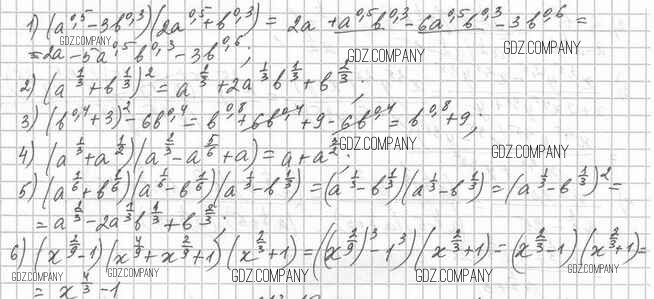 1) (a^0,5 - 3b^0,3)(2a^0,5 + b^0,3) = 2a + a^0,5 b^0,3 - 6a^0,5 b^0,3 - 3b^0,6 =
GDZ.COMPANY GDZ.COMPANY GDZ.COMPANY
= 2a - 5a^0,5 b^0,3 - 3b^0,6;
2) (a^(1/3) + b^(1/3))^2 = a^(2/3) + 2a^(1/3) b^(1/3) + b^(2/3);
GDZ.COMPANY
3) (b^0,4 + 3)^2 - 6b^0,4 = b^0,8 + 6b^0,4 + 9 - 6b^0,4 = b^0,8 + 9;
GDZ.COMPANY GDZ.COMPANY
4) (a^(1/3) + a^(1/2))(a^(2/3) - a^(5/6) + a) = a + a^(3/2);
5) (a^(1/6) + b^(1/6))(a^(1/6) - b^(1/6))(a^(1/3) - b^(1/3)) = (a^(1/3) - b^(1/3))(a^(1/3) - b^(1/3)) = (a^(1/3) - b^(1/3))^2 =
= a^(2/3) - 2a^(1/3) b^(1/3) + b^(2/3);
6) (x^(2/9) - 1)(x^(4/9) + x^(2/9) + 1)(x^(2/3) + 1) = ((x^(2/9))^3 - 1^3)(x^(2/3) + 1) = (x^(2/3) - 1)(x^(2/3) + 1) =
GDZ.COMPANY GDZ.COMPANY GDZ.COMPANY GDZ.COMPANY GDZ.COMPANY
= x^(4/3) - 1